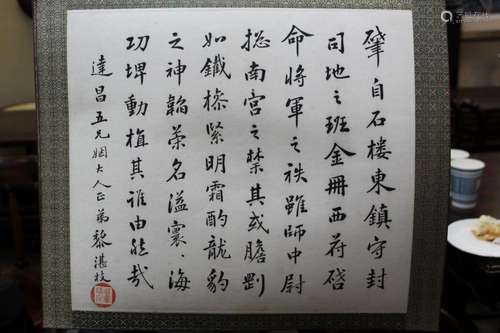 肇自石楼東鎮守封
司地之班金冊西苻啓
命将軍之袟雖師中尉
捴南宮之禁其或膽剄
如鐵㯳緊明霜酌龍豹
之神韜荣名溢寰海
功埤動植其誰由然哉
達昌五兄姻大人正弟黎湛枝